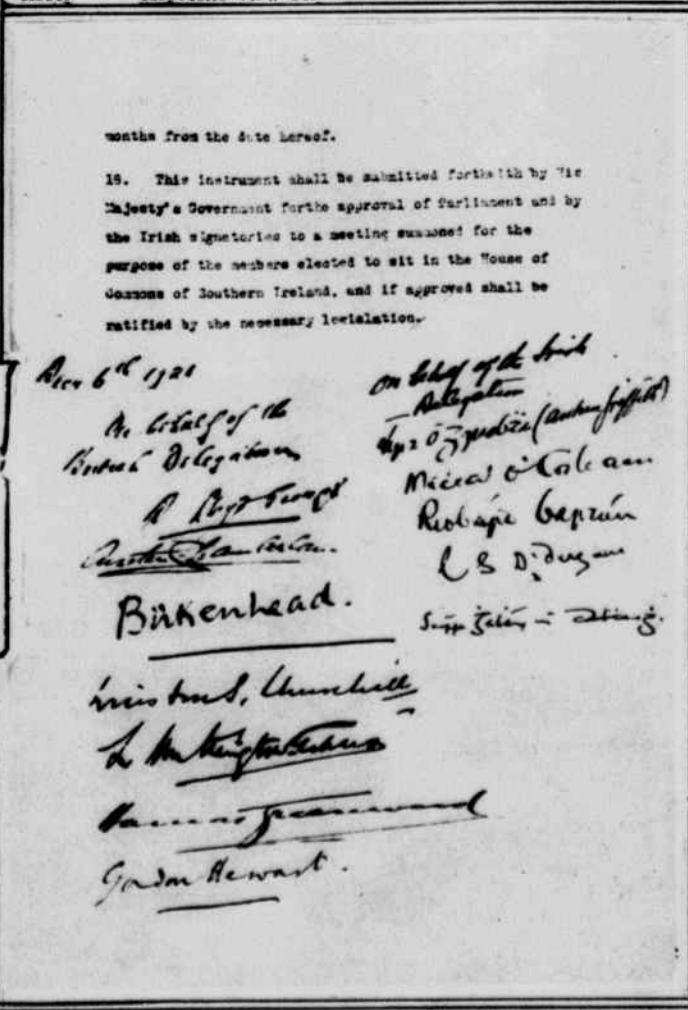 months from the date hereof.
18. This instrument shall be submitted forthwith by His
Majesty's Government forthe approval of Parliament and by
the Irish signatories to a meeting summoned for the
purpose of the members elected to sit in the House of
Commons of Southern Ireland, and if approved shall be
ratified by the necessary legislation.
Decr 6th 1921
On behalf of the
British Delegation
D Lloyd George
Austen Chamberlain.
Birkenhead.
Winston S. Churchill
L Worthington-Evans
Hamar Greenwood
Gordon Hewart.
On behalf of the Irish
Delegation
Art Ó Gríobhtha (Arthur Griffith)
Micheál Ó Coileain
Riobárd Bartún
E S Ó Dugain
Seórsa Ghabháin uí Dhubhthaigh